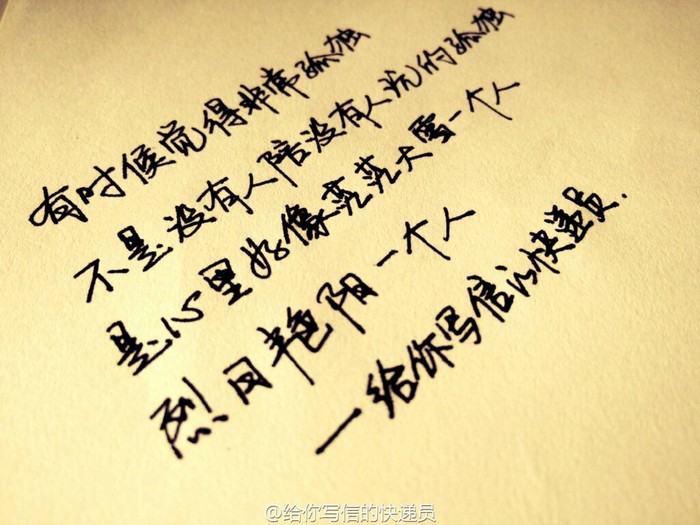 有时候觉得非常孤独
不是没有人陪没有人说的孤独
是心里好像茫茫大雪一个人
烈日艳阳一个人
一给你写信的快递员.
@给你写信的快递员